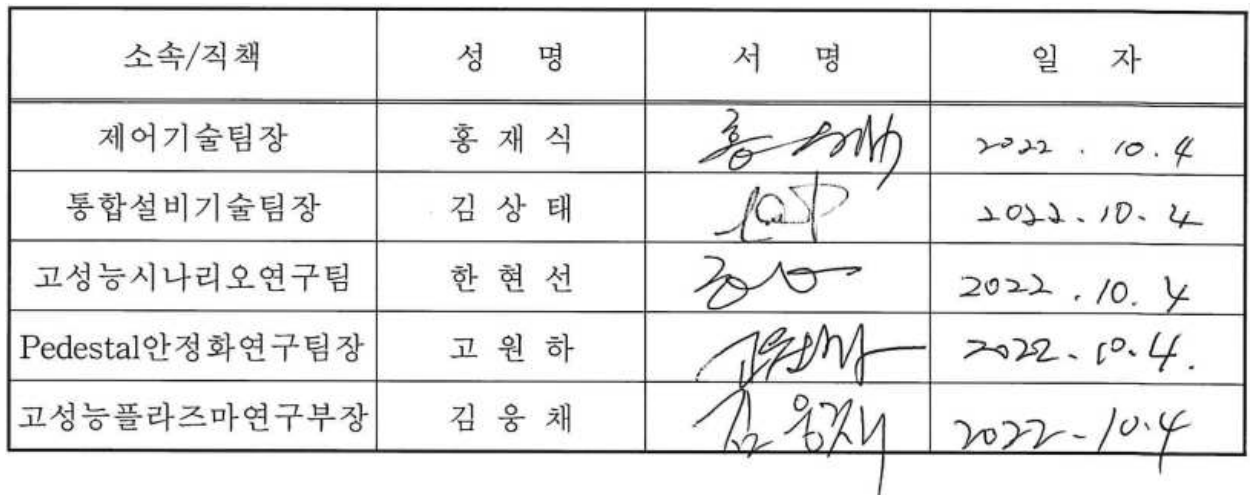 소속/직책 성 명 서 명 일 자
제어기술팀장 홍 재 식 2022 . 10 . 4
통합설비기술팀장 김 상 태 2022 . 10 . 4
고성능시나리오연구팀 한 현 선 2022 . 10 . 4
Pedestal안정화연구팀장 고 원 하 2022 . 10 . 4 .
고성능플라즈마연구부장 김 웅 채 김웅채 2022 - 10 . 4